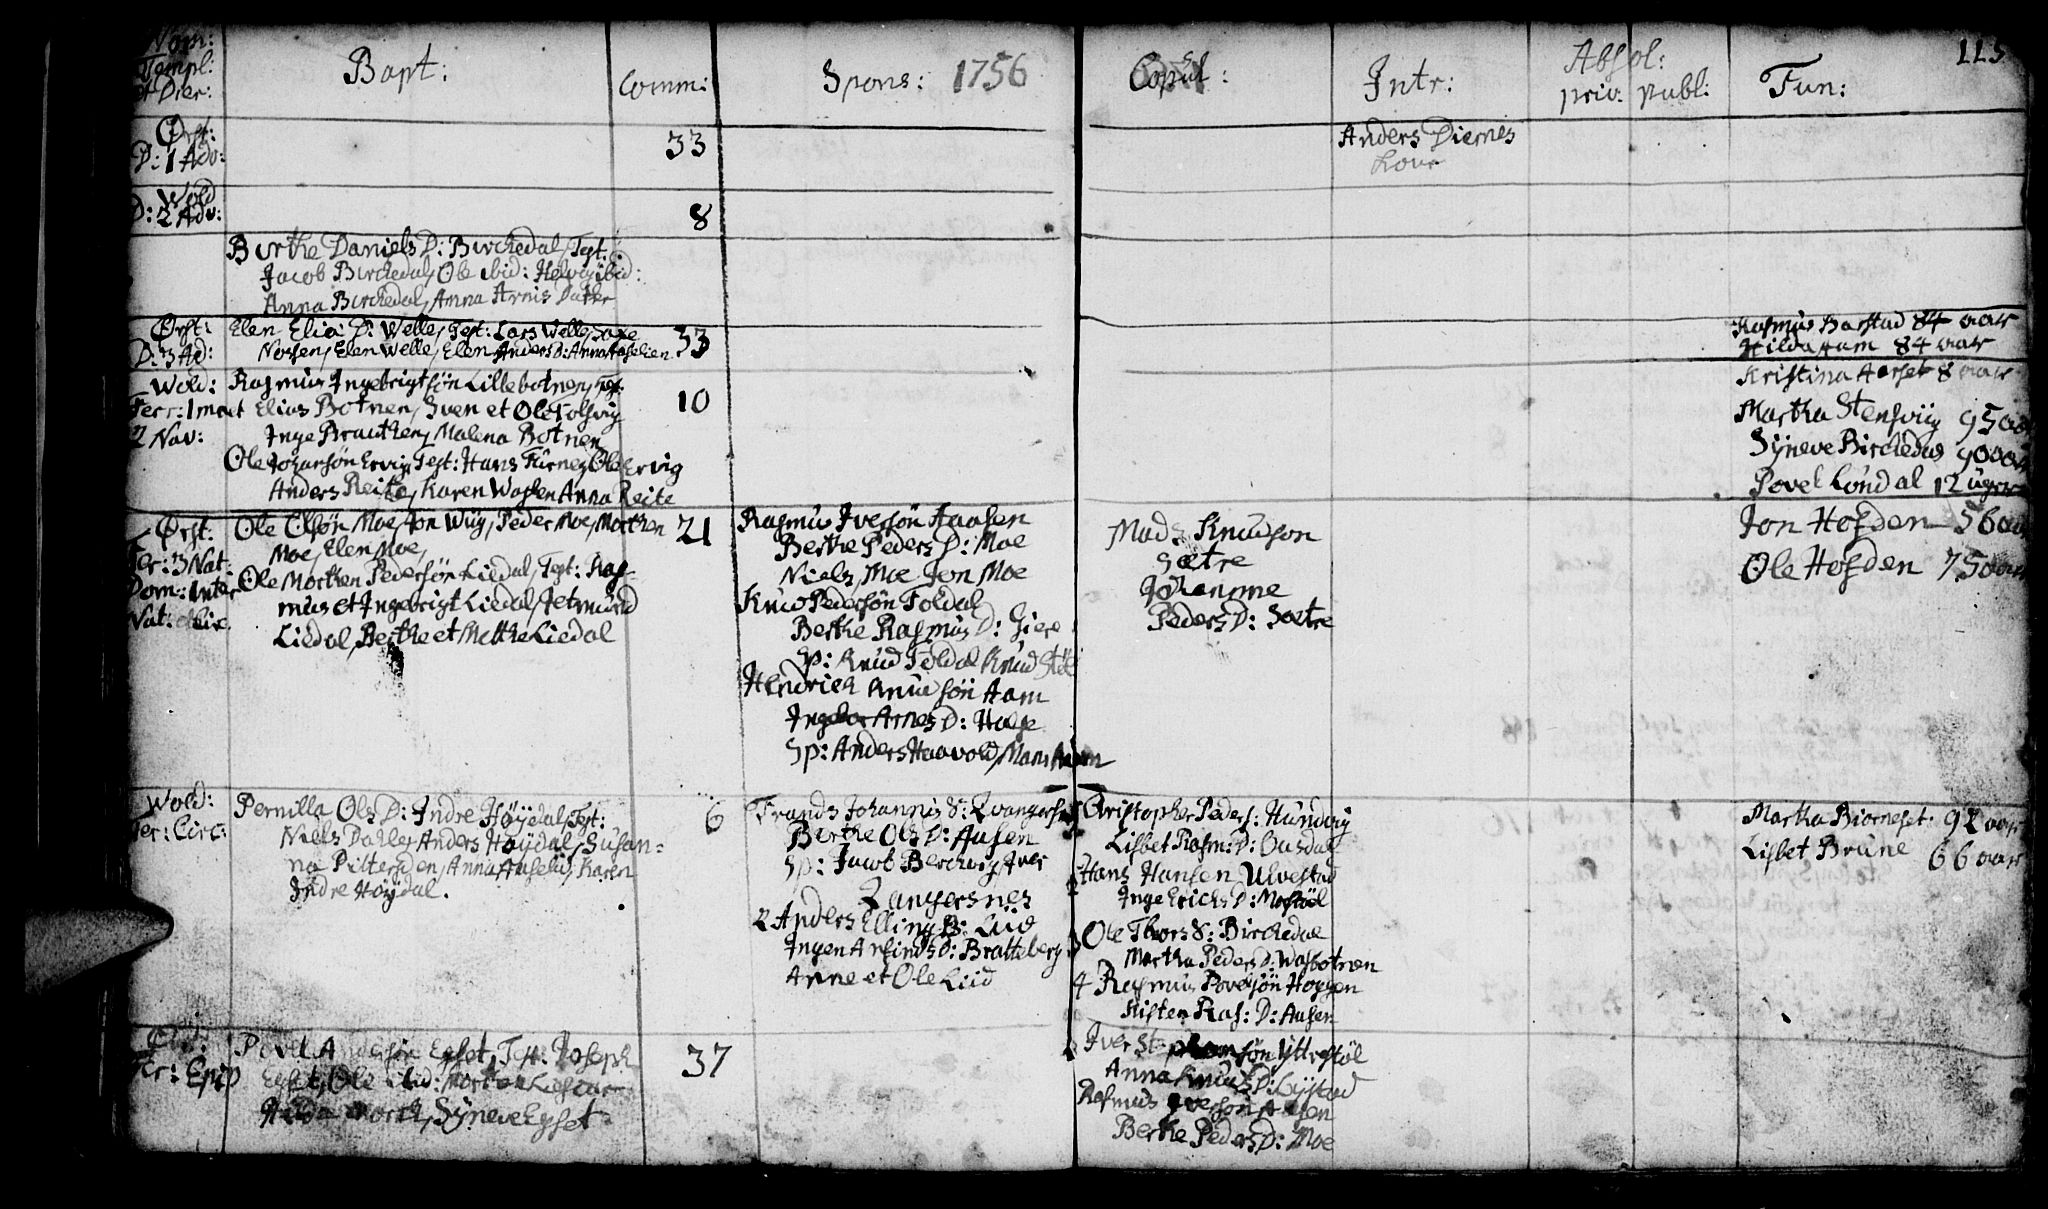 Nom:
Templ:
et Dier:
Bapt:
Comm:
Spons: 1756
Copul:
Intr:
Absol:
priv: publ:
Fun:
115
Ørst:
D: 1 Adv:
33
Anders Diernes
Kone
Wold
D: 2 Adv:
8
Birthe Daniels D: Birchedal, Test:
Jacob Birchedal, Ole ibid: Helvig ibid:
Anna Birchedal, Anna Arnis Datter
Ørst:
D: 3 Ad:
Elen Elia D: Welle, Test: Lars Welle, Saxe
Nosen, Elen Welle, Elen Anders D: Anna
33
Rasmus Barstad 84 aar
Hilda Aam 84 aar
Wold:
Fer: 1 mat
2 Nav:
Rasmus Ingebrigtsøn Lillebotnen, Test:
Elias Botnen, Sven et Ole Folsvig
Inge Brauthen, Malena Botnen
Ole Joharsøn Ervig, Test: Hans Furnes, Ole Ervig
Anders Reite, Karen Wassen Anna Reite
10
Kristina Aarset 8 aar
Martha Stensviig 95 aar
Syneve Birchedal 90 aar
Povel Londal 12 uger
Ørst:
Fer: 3 Nat:
Dom: Inter
Nat:
Ole Olsøn Moe, Jon Wiig, Peder Moe, Morthen
Moe, Elen Moe,
Ole Morthen Pedersøn Liedal, Test: Ras-
mus et Ingebrigt Liedal, Jetmund
Liedal, Berthe et Methe Liedal
21
Rasmus Iversøn Aaasen
Berthe Peders D: Moe
Niels Moe Jon Moe
Knud Pedersøn Foldal
Berthe Rasmus D: Giere
Sp: Knud Foldal Knud
Hendrich Knudsøn Aam
Ingebor Arnes D: Halse
Sp: Anders Haavold, Mans Aam
Mads Knudson
Sætre
Johanne
Peders D: Sætre
Jon Hofden 56 aar
Ole Hofden 75 aar
Wold:
Fer: Circ:
Pernilla Ols D: Indre Høydal, Test:
Niels Dahle, Anders Høydal, Susan=
na Pilterden, Anna Aaselie, Karen
Indre Høydal.
6
Frands Johannis S: Zvangersnes
Berthe Ols D: Aasen
Sp: Jacob Berchvig, Iver
Zangersnes
2 Anders Elling S: Liid
Ingen Arfinds D: Bratteberg
Anne et Ole Liid
Christopher Peders: Hundvig
Lisbet Rasm: D: Ousdal
2 Hans Hansen Ulvestad
Inge Erichs D: Mostøl
3 Ole Thors S: Birchedal
Martha Peders D: Wasbotnen
4 Rasmus Povelsøn Hovgen
Kisten Ras: D: Aasen
Martha Biørneset 92 aar
Lisbet Brune 66 aar
Ørst:
Fer: Epip
Povel Andersøn Egset, Test: Joseph
Egset, Ole ibid:
Hilda Morch, Syneve Egset
37
Iver Stephansøn Yttrestøl
Anna Knuds D: Lystad
Rasmus Iversøn Aasen
Berthe Peders D: Moe